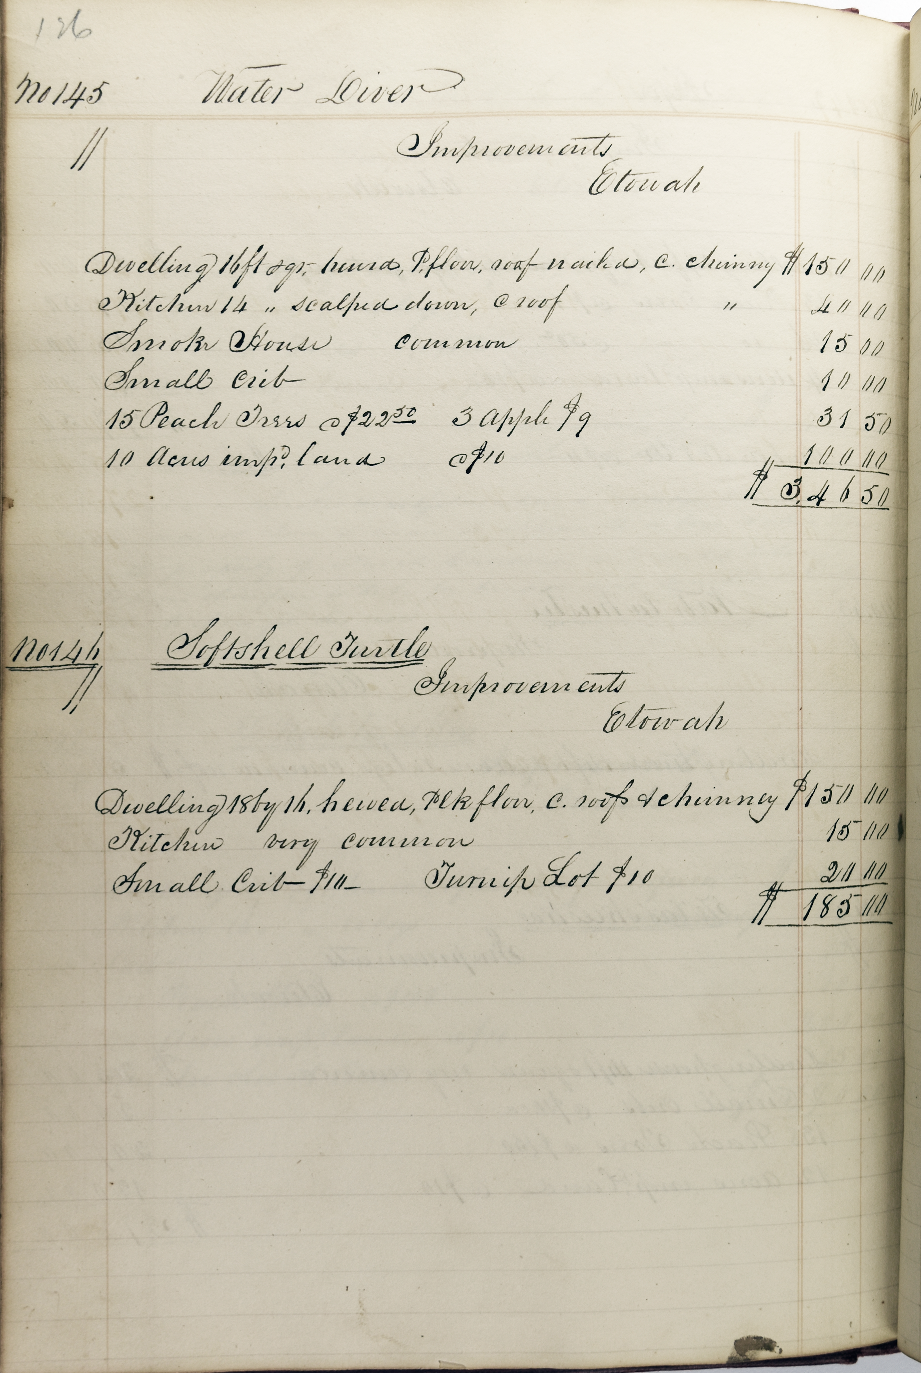 126
No 145 Water Diver
" Improvements
Etowah
Dwelling 16ft sqr, hewed, P. floor, roof nailed, c. chimney $ 150 00
Kitchen 14 „ scalped down, c roof „ 40 00
Smoke House common 15 00
Small Crib 10 00
15 Peach Trees @ $22 50 3 Apple $9 31 50
10 Acres impd. land @ $10 100 00
$ 346 50
No 146 Softshell Turtle
" Improvements
Etowah
Dwelling 18 by 16, hewed, Plk floor, c. roof & chimney $ 150 00
Kitchen very common 15 00
Small Crib $10 Turnip Lot $10 20 00
$ 185 00